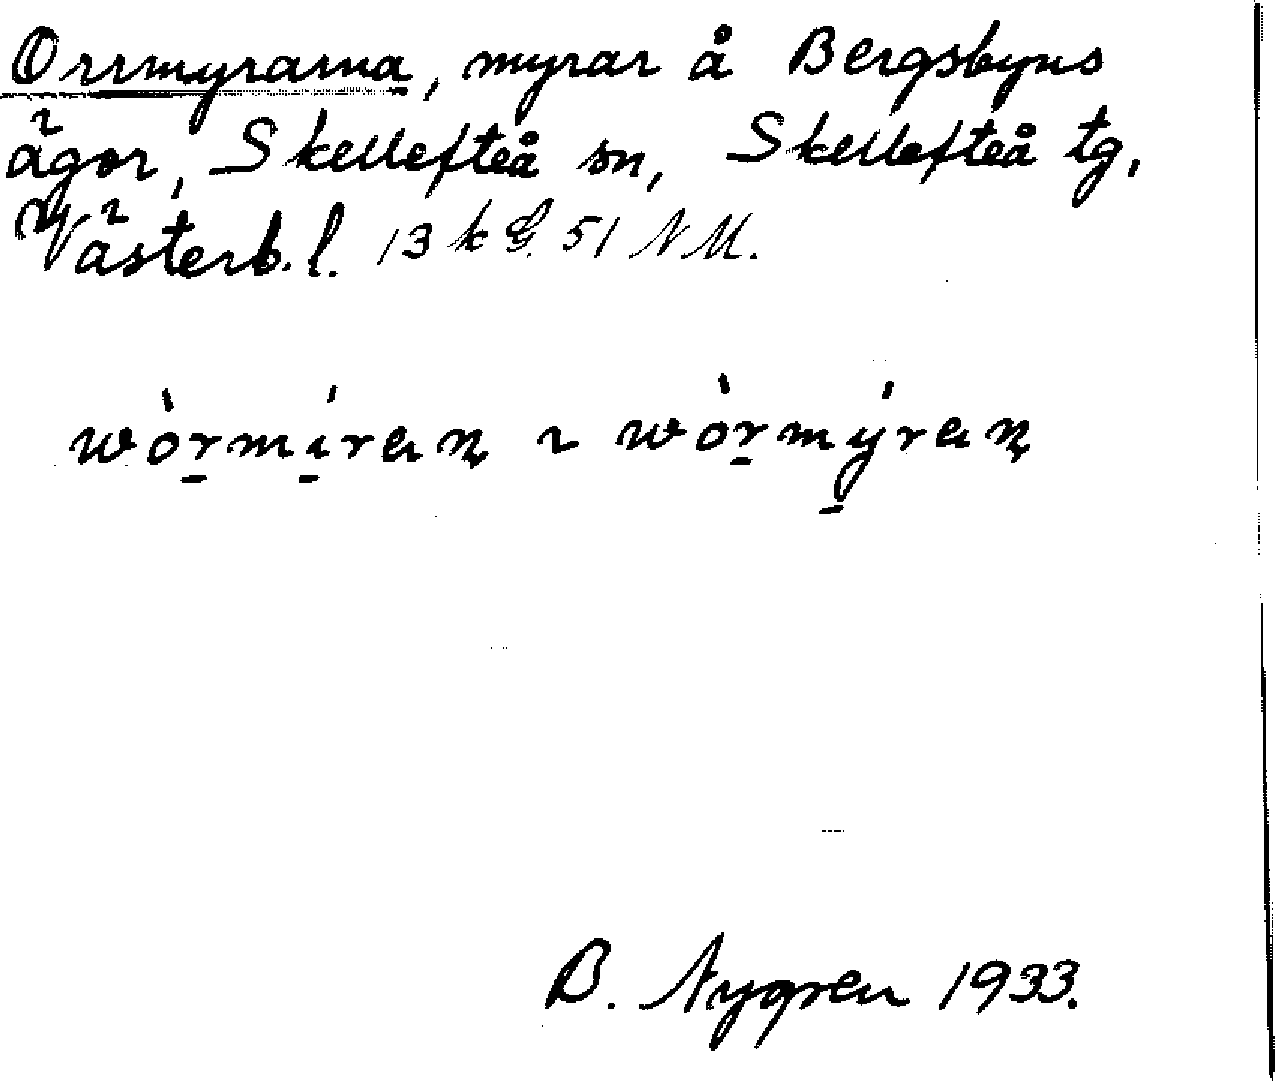 Orrmyrarna, myrar å Bergsbyns
ägor, Skellefteå sn, Skellefteå tg,
Västerb. l. 13 k G. 51 NM.
wòr̠mí̠raṇ ~ wòr̠mý̠raṇ
B. Nygren 1933.